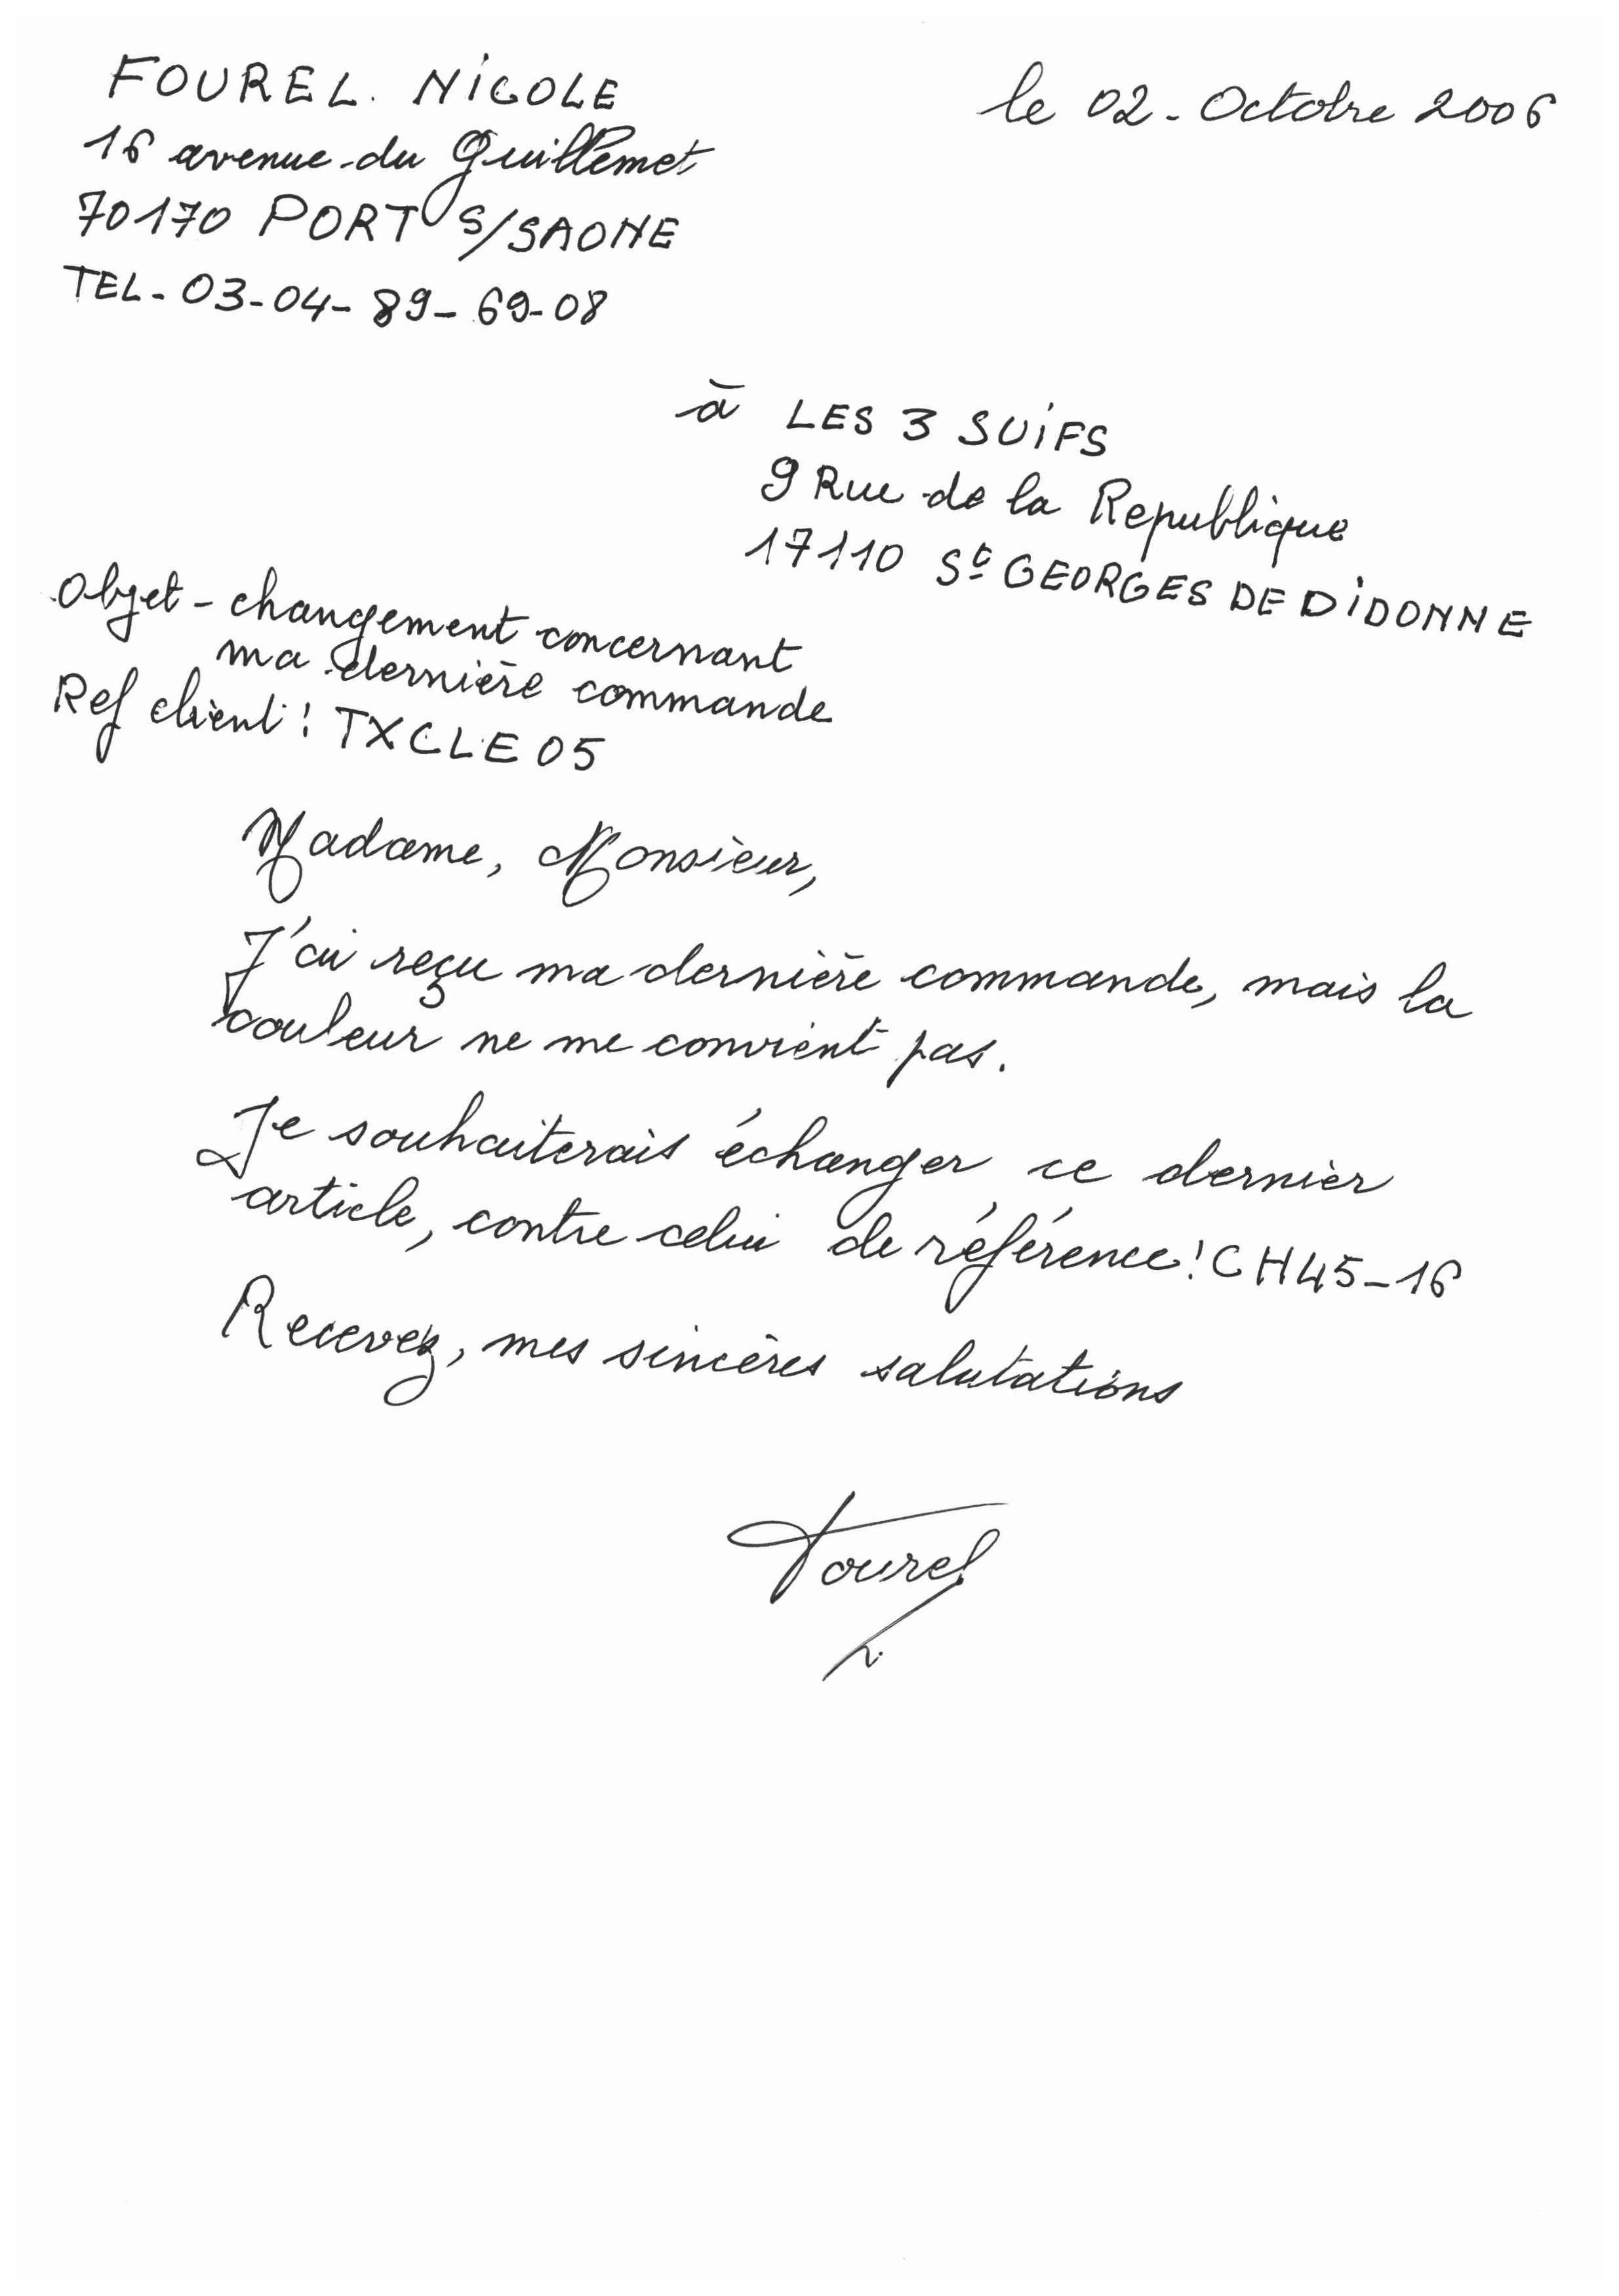 FOUREL. NICOLE
le 02-Octobre 2006
16 avenue du Guillemet
70170 PORT S/SAONE
TEL- 03-04-89-69-08
à LES 3 SUIFS
9 Rue de la Republique
17110 St GEORGES DE DIDONNE
Objet - changement concernant
ma dernière commande
Ref client : TXCLE05
Madame, Monsieur,
J'ai reçu ma dernière commande, mais la
couleur ne me convient pas.
Je souhaiterais échanger ce dernier
article, contre celui de référence : CH45-16
Recevez, mes sincères salutations
Fourel